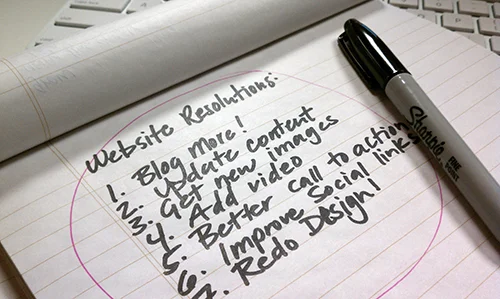 Website Resolutions:
1. Blog More!
2. Update content
3. Get new images
4. Add video
5. Better call to action
6. Improve Social links
7. Redo Design!
Sharpie
FINE